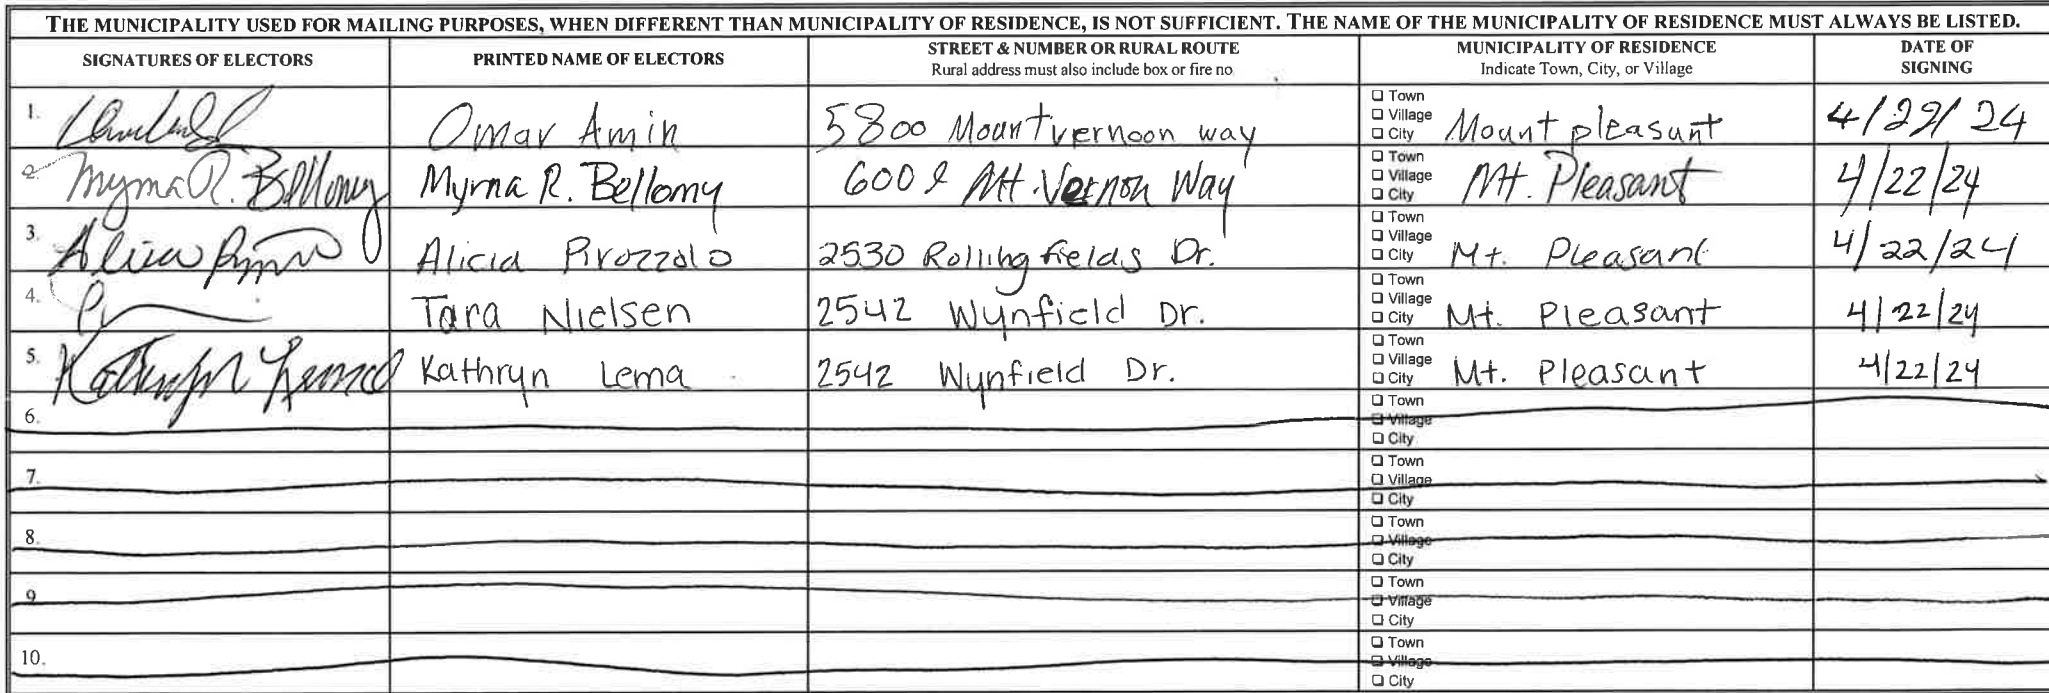 THE MUNICIPALITY USED FOR MAILING PURPOSES, WHEN DIFFERENT THAN MUNICIPALITY OF RESIDENCE, IS NOT SUFFICIENT. THE NAME OF THE MUNICIPALITY OF RESIDENCE MUST ALWAYS BE LISTED.
SIGNATURES OF ELECTORS PRINTED NAME OF ELECTORS STREET & NUMBER OR RURAL ROUTE Rural address must also include box or fire no MUNICIPALITY OF RESIDENCE Indicate Town, City, or Village DATE OF SIGNING
1. Omar Amin 5800 Mount vernon way Town Village City Mount pleasant 4/22/24
2. Myrna R. Bellomy Myrna R. Bellomy Mt. Vernon Way Town Village City Mt. Pleasant 4/22/24
3. Alicia Alicia Pirozzolo 2530 Rolling fields Dr. Town Village City Mt. Pleasant 4/22/24
4. Tara Nielsen 2542 Wynfield Dr. Town Village City Mt. Pleasant 4/22/24
5. Kathryn Lema Kathryn Lema 2542 Wynfield Dr. Town Village City Mt. Pleasant 4/22/24
6. Town Village City
7. Town Village City
8. Town Village City
9. Town Village City
10. Town Village City